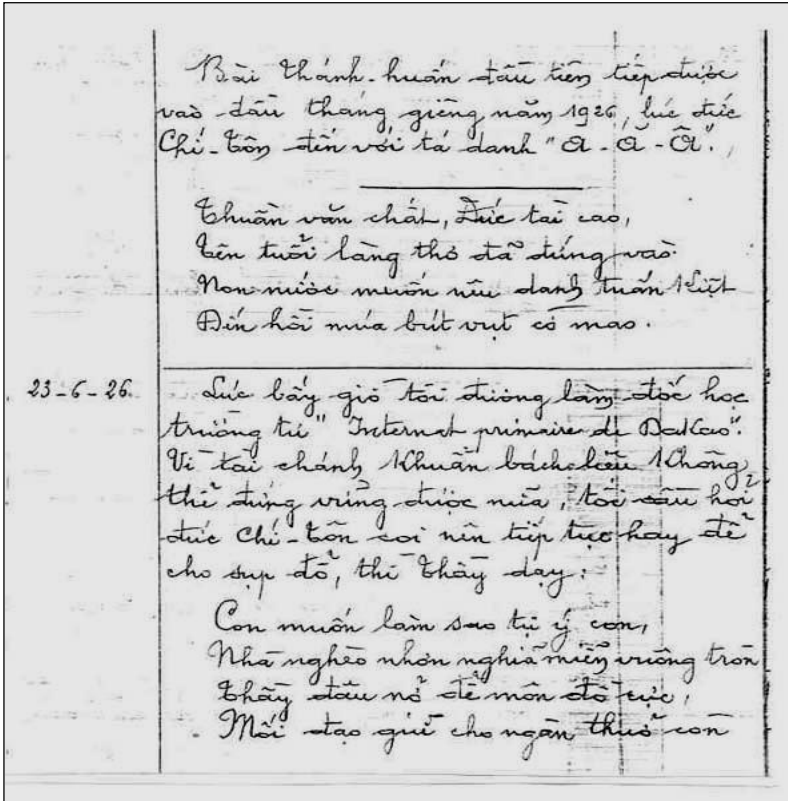 Bài Thánh-huấn đầu tiên tiếp được
vào đầu tháng giêng năm 1926, lúc đức
Chí-Tôn đến với tá danh "A-Ă-Â".
Thuần văn chất, Đức tài cao,
Tên tuổi làng thơ đã đứng vào
Non nước muốn nêu danh tuấn kiệt
Đến hồi múa bút vụt có mao.
23-6-26. Lúc bấy giờ tôi đương làm đốc học
trường tư "Internat primaire de DaKao".
Vì tài chánh khuẩn bách liệu không
thể đứng vững được nữa, tôi cầu hỏi
đức Chí-Tôn coi nên tiếp tục hay để
cho sụp đổ, thì Thầy dạy:
Con muốn làm sao tự ý con,
Nhà nghèo nhơn nghĩa miễn vuông tròn
Thầy đâu nở để môn đồ cực,
Mối đạo giữ cho ngàn thuở còn